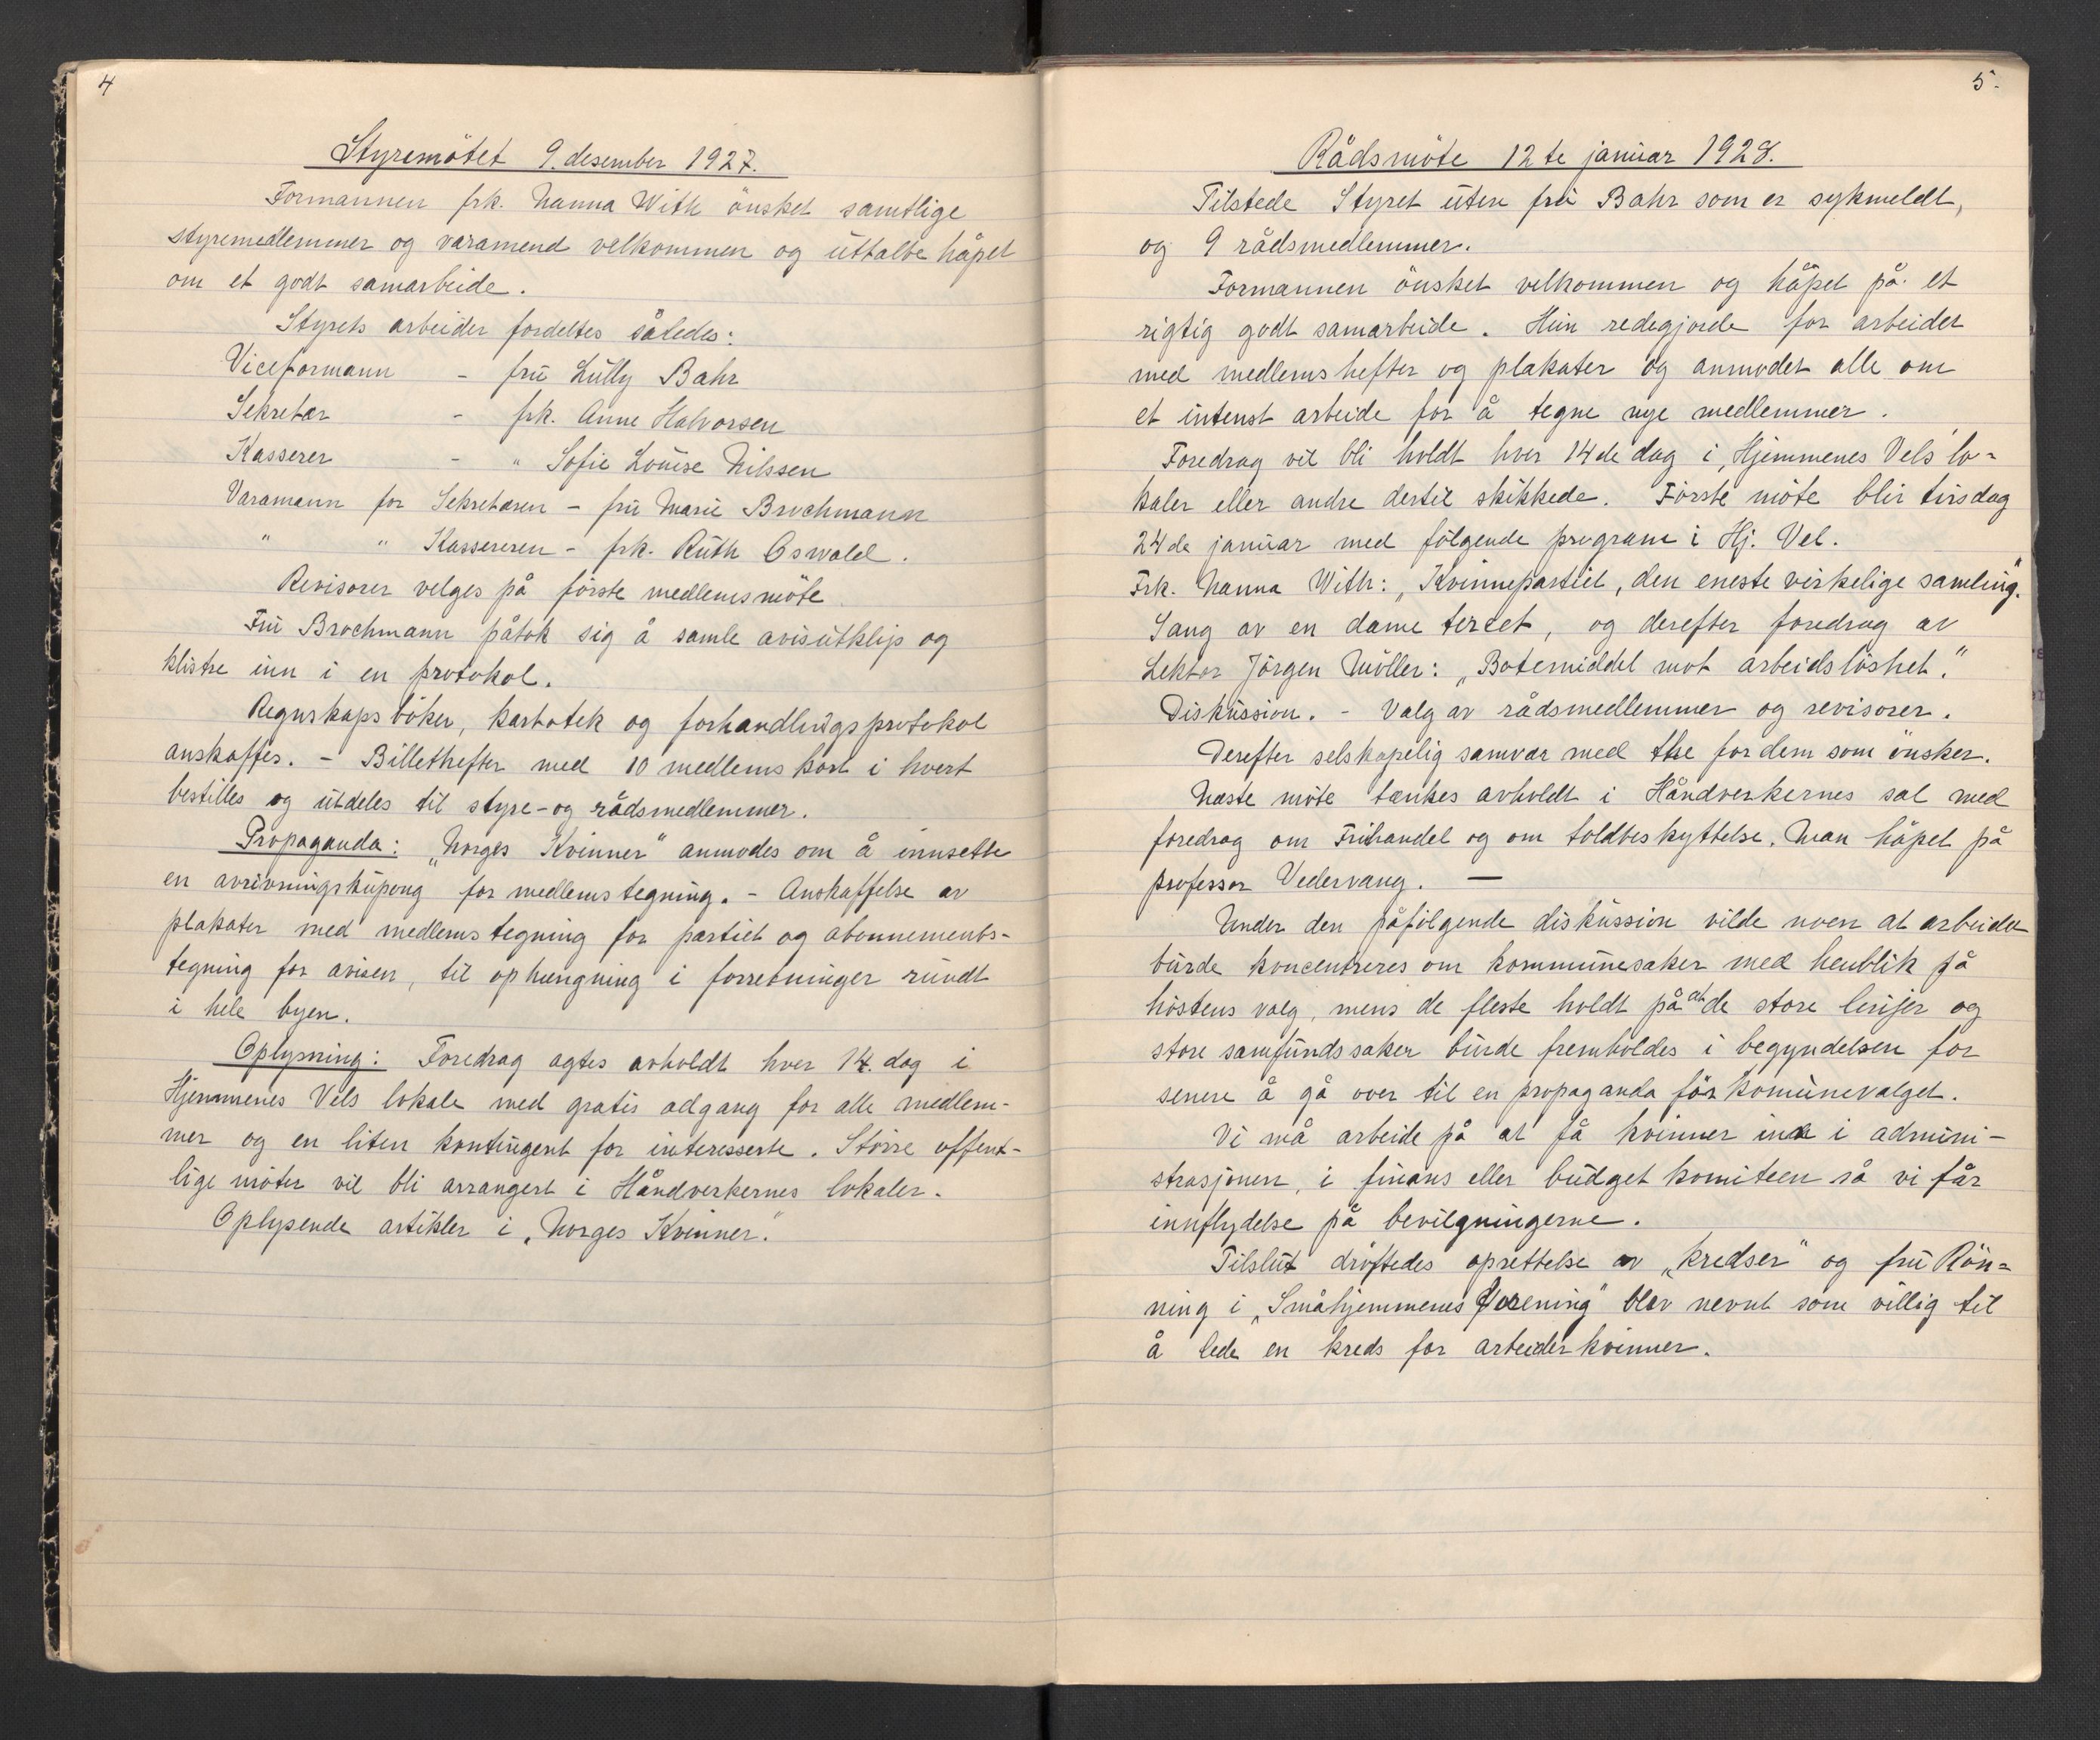 4
Styremötet 9. desember 1927.
Formannen frk. Nanna With önsket samtlige
styremedlemmer og varamend velkommen og uttalte håpet
om et godt samarbeide.
Styrets arbeider fordeltes således:
Viceformann - fru Lully Bahr
Sekretær - frk. Anne Halvorsen
Kasserer - " Sofie Louise Nilssen
Varamann for Sekretæren - fru Marie Brochmann
" " Kassereren - frk. Ruth Oswald.
Revisorer velges på förste medlemsmöte
Fru Brochmann påtok sig å samle avisutklip og
klistre inn i en protokol.
Regnskapsböker, kartotek og forhandlingsprotokol
anskaffes. - Billethefter med 10 medlemskort i hvert
bestilles og utdeles til styre- og rådsmedlemmer.
Propaganda: „Norges Kvinner" anmodes om å innsette
en avrivningskupong for medlemstegning. - Anskaffelse av
plakater med medlemstegning for partiet og abonnements-
tegning for avisen, til ophængning i forretninger rundt
i hele byen.
Oplysning: Foredrag agtes avholdt hver 14. dag i
Hjemmenes Vels lokale med gratis adgang for alle medlem-
mer og en liten kontingent for interesserte. Större offent-
lige möter vil bli arrangert i Håndverkernes lokaler.
Oplysende artikler i „Norges Kvinner."
5.
Rådsmöte 12te januar 1928.
Tilstede Styret uten fru Bahr som er sykmeldt,
og 9 rådsmedlemmer.
Formannen önsket velkommen og håpet på et
rigtig godt samarbeide. Hun redegjorde for arbeidet
med medlemshefter og plakater og anmodet alle om
et intenst arbeide for å tegne nye medlemmer.
Foredrag vil bli holdt hver 14de dag i „Hjemmenes Vels' lo-
kaler eller andre dertil skikkede. Förste möte blir tirsdag
24de januar med fölgende program i Hj. Vel.
Frk. Nanna With: „Kvinnepartiet, den eneste virkelige samling."
Sang av en dame terzet, og derefter foredrag av
Lektor Jörgen Möller: „Botemiddel mot arbeidslöshet."
Diskussion. - Valg av rådsmedlemmer og revisorer.
Derefter selskapelig samvær med the for dem som önsker.
Næste möte tænkes avholdt i Håndverkernes sal med
foredrag om Frihandel og om toldbeskyttelse. Man håpet på
professor Vedervang. —
Under den påfölgende diskussion vilde noen at arbeidet
burde koncentreres om kommunesaker med henblik på
höstens valg, mens de fleste holdt på at de store linjer og
store samfundssaker burde fremholdes i begyndelsen for
senere å gå over til en propaganda för komunevalget.
Vi må arbeide på at få kvinner inn i admini-
strasjonen, i finans eller budget komiteen så vi får
innflydelse på bevilgningerne.
Tilslut dröftedes oprettelse av „kredser" og fru Rön-
ning i „Småhjemmenes forening" blev nevnt som villig til
å lede en kreds for arbeiderkvinner.